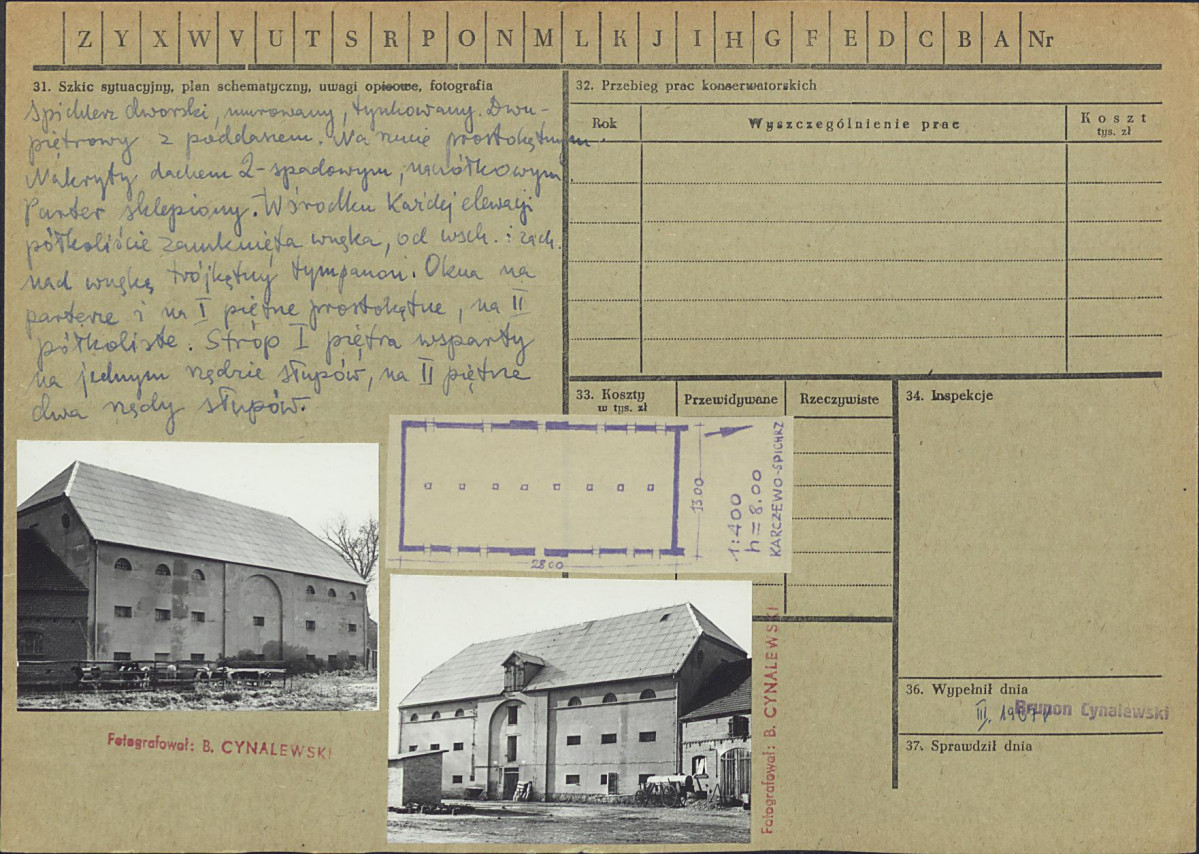 Z Y X W V U T S R P O N M L K J I H G F E D C B A Nr
31. Szkic sytuacyjny, plan schematyczny, uwagi opisowe, fotografia
Spichlerz dworski, murowany, tynkowany. Dwu-
piętrowy z poddaszem. Na rzucie prostokątnym.
Nakryty dachem 2-spadowym, naczółkowym
Parter sklepiony. W środku każdej elewacji
półkoliście zamknięta wnęka, od wsch. i zach.
nad wnęką trójkątny tympanon. Okna na
parterze i na I piętrze prostokątne, na II
półkoliste. Strop I piętra wsparty
na jednym rzędzie słupów, na II piętrze
dwa rzędy słupów.
32. Przebieg prac konserwatorskich
Rok
Wyszczególnienie prac
Koszt
tys. zł
33. Koszty
w tys. zł
Przewidywane
Rzeczywiste
34. Inspekcje
2800
1300
1:400
h=8.00
KARCZEWO-SPICHRZ
Fotografował: B. CYNALEWSKI
Fotografował: B. CYNALEWSKI
36. Wypełnił dnia
III. Brunon Cynalewski
37. Sprawdził dnia